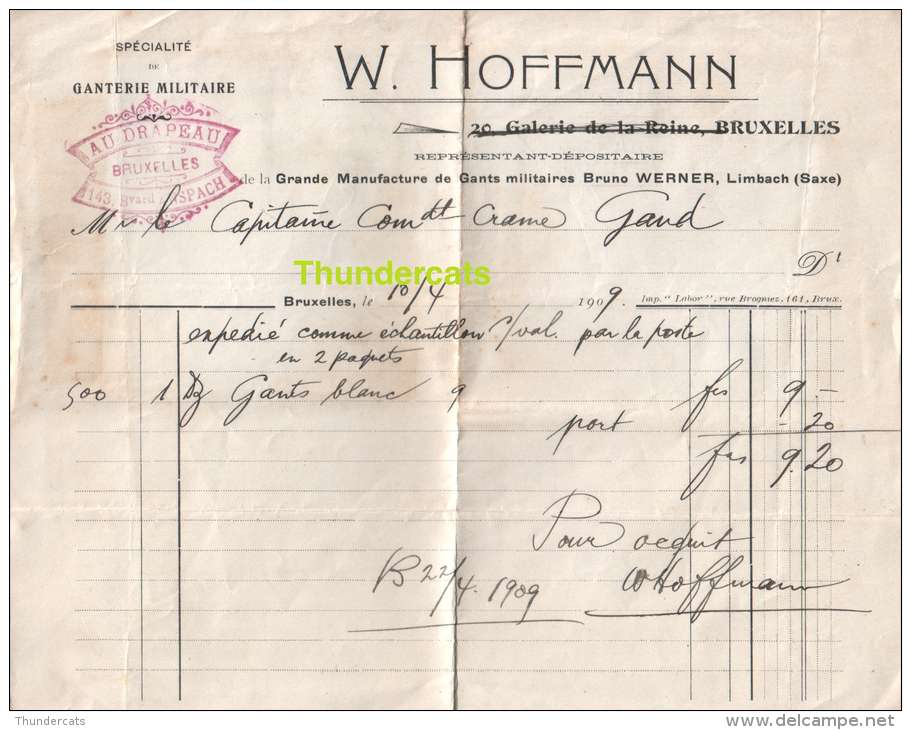 SPÉCIALITÉ
DE
GANTERIE MILITAIRE
W. HOFFMANN
20, Galerie de la Reine, BRUXELLES
REPRÉSENTANT-DÉPOSITAIRE
de la Grande Manufacture de Gants militaires Bruno WERNER, Limbach (Saxe)
AU DRAPEAU
BRUXELLES
143, Bvard ANSPACH
Mr le Capitaine Comdt Crame Gand
Dt
Thundercats
Bruxelles, le 10/4 1909. Imp. "Labor", rue Brogniez, 161, Brux.
expedié comme échantillon s/val. par la poste
en 2 paquets
500 1 Dz Gants blanc 9 frs 9.—
port -20
frs 9.20
Pour acquit
B 22/4. 1909 WHoffmann
Thundercats
www.delcampe.net